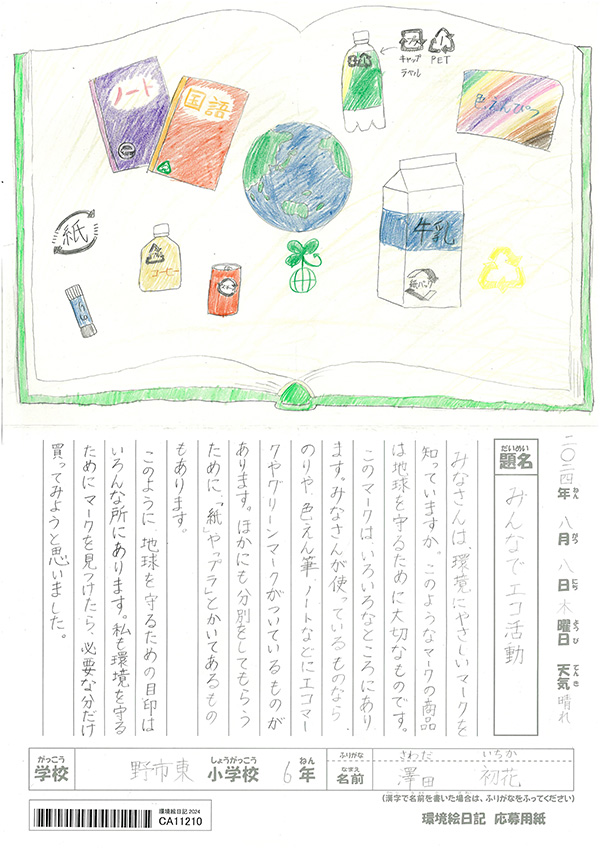 ノート
国語
キャップ
ラベル
PET
色えんぴつ
紙
コーヒー
牛乳
紙パック
二〇二四年 八月 八日 木曜日 天気 晴れ
ねん がつ にち ようび てんき
だいめい
題名
みんなでエコ活動
みなさんは、環境にやさしいマークを
知っていますか。このようなマークの商品
は地球を守るために大切なものです。
このマークは、いろいろなところにあり
ます。みなさんが使っているものなら、
のりや、色えん筆、ノートなどにエコマー
クやグリーンマークがついているものが
あります。ほかにも分別をしてもらう
ために、「紙」や「プラ」とかいてあるもの
もあります。
このように、地球を守るための目印は
いろんな所にあります。私も環境を守る
ためにマークを見つけたら、必要な分だけ
買ってみようと思いました。
がっこう
学校
野市東
しょうがっこう
小学校
6
ねん
年
ふりがな
さわだ いちか
なまえ
名前
澤田 初花
(漢字で名前を書いた場合は、ふりがなをふってください)
環境絵日記 2024
CA11210
環境絵日記 応募用紙